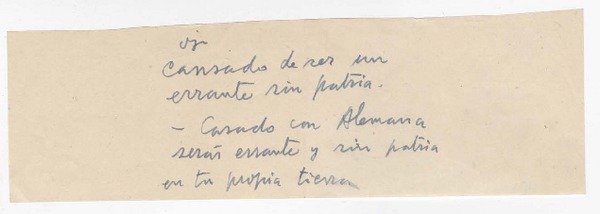 Cansado de ser un
errante sin patria.
– Casado con Alemana
serás errante y sin patria
en tu propia tierra